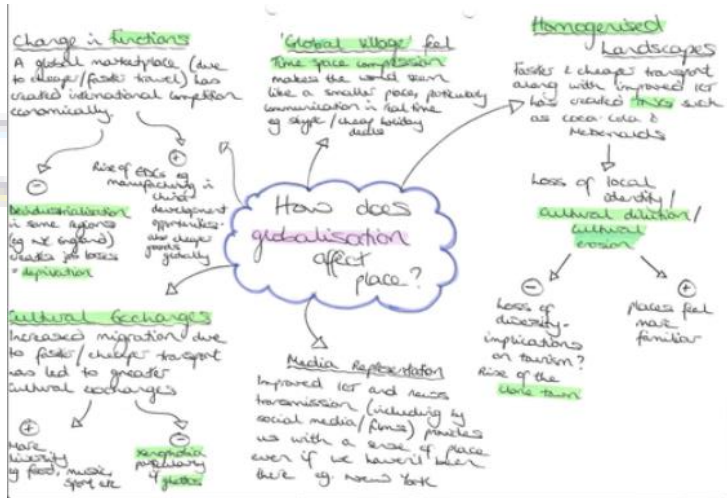 Change in functions
A global marketplace (due
to cheaper/faster travel) has
created international competition
economically.
⊖
Deindustrialisation
in some regions
(eg NE England)
creates job losses
= deprivation
⊕
Rise of EDCs eg
manufacturing in
China
development
opportunities-
also cheaper
goods
globally
'Global Village' feel
Time space compression
makes the world seem
like a smaller place, particularly
communication in real time
eg skype / cheap holiday
deals
Homogenised
Landscapes
Faster & cheaper transport
along with improved ICT
has created TNCs such
as coca-cola &
McDonalds
Loss of local
identity/
cultural dilution/
cultural
erosion
⊖
Loss of
diversity-
implications
on tourism?
Rise of the
clone town
⊕
Places feel
more
familiar
How does
globalisation
affect
place?
Cultural Exchanges
Increased migration due
to faster/cheaper transport
has led to greater
cultural exchanges
⊕
More
diversity
eg food, music,
sport etc
⊖
xenophobia
particularly
if ghettos
Media Representation
Improved ICT and news
transmission (including by
social media/films) provides
us with a sense of place
even if we haven't been
there eg. New York